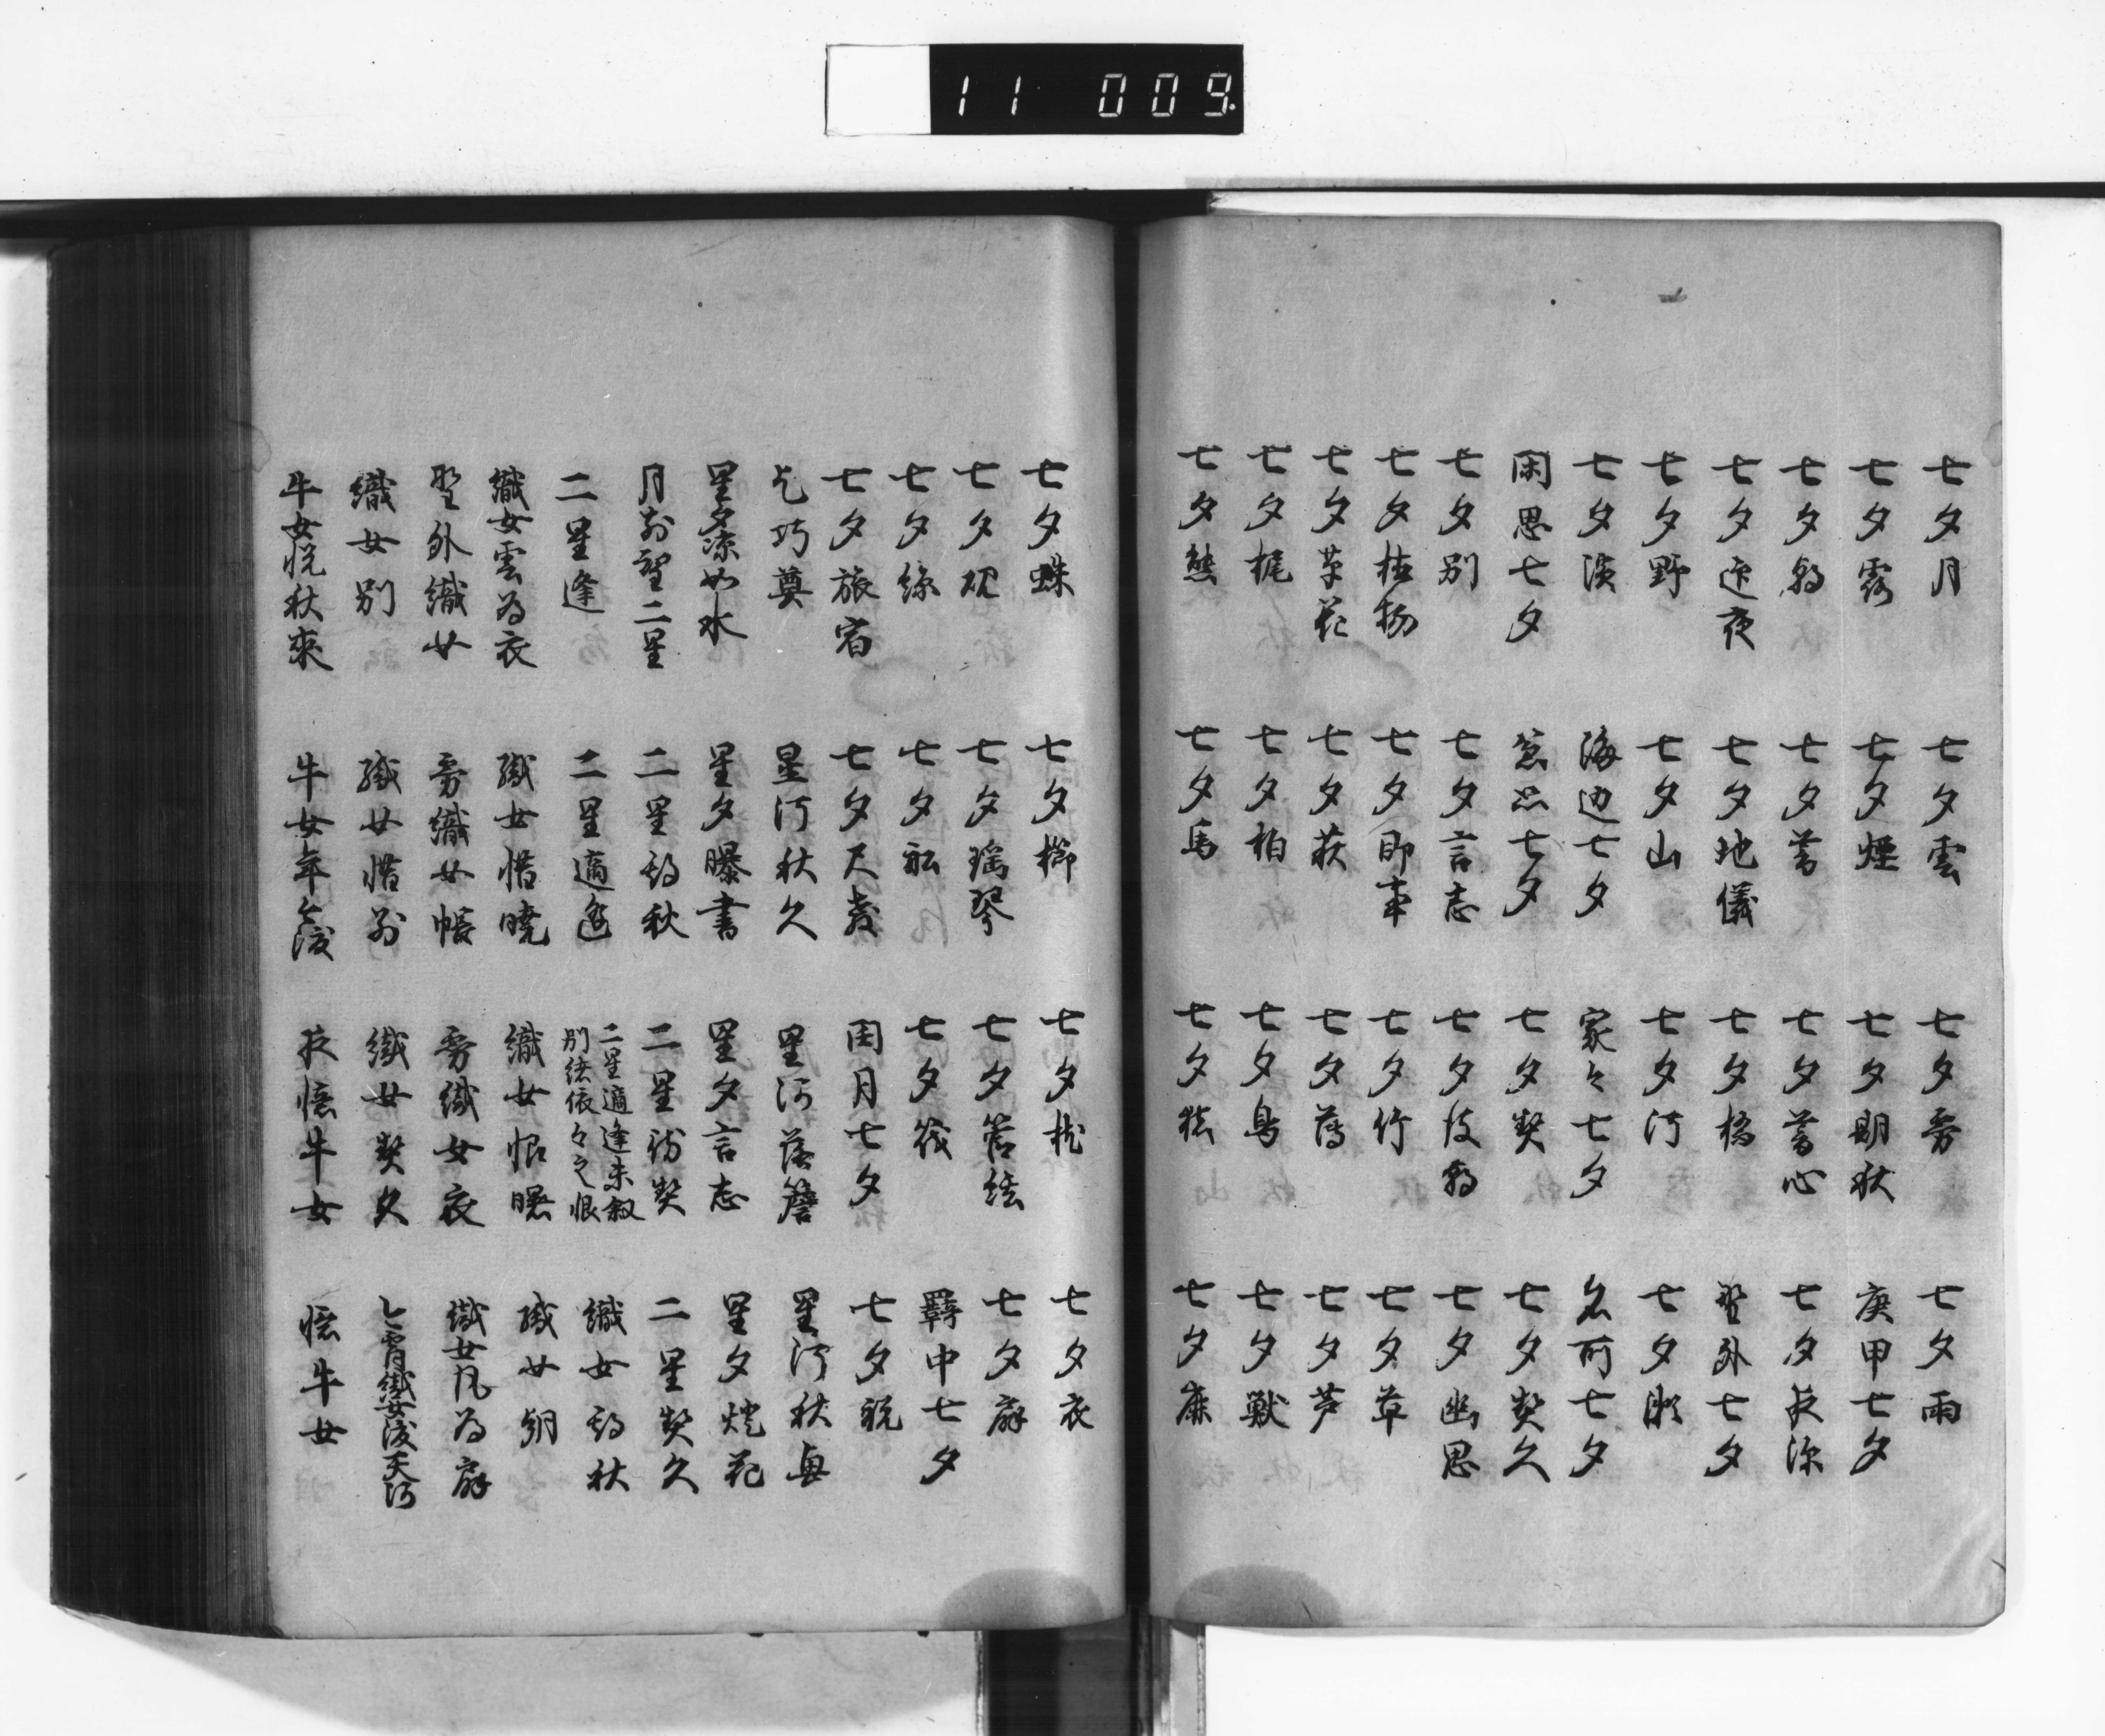 11 009
七夕月 七夕雲 七夕雰 七夕雨
七夕露 七夕煙 七夕期秋 庚申七夕
七夕朝 七夕暮 七夕暮心 七夕夜深
七夕迎夜 七夕地儀 七夕橋 野外七夕
七夕野 七夕山 七夕河
七夕濱 海辺七夕 家々七夕 名所七夕
閑思七夕 七夕契 七夕契久
七夕別 七夕言志 七夕後朝 七夕幽思
七夕植物 七夕即事 七夕竹 七夕草
七夕草花 七夕荻 七夕薄 七夕芦
七夕梶 七夕柏 七夕鳥 七夕獣
七夕馬
七夕蛛 七夕櫛 七夕枕 七夕衣
七夕硯 七夕瑶琴 七夕管絃 七夕扇
七夕絲 七夕船 七夕筏 羇中七夕
七夕旅宿 七夕尺教 閏月七夕 七夕祝
乞巧奠 星河秋久 星河落簷 星河秋興
星夕涼如水 星夕曝書 星夕言志 星夕燈花
月前望二星 二星待秋 二星待契 二星契久
二星逢 二星適逢 二星適逢未叙別緒依々之恨 織女待秋
織女雲為衣 織女惜暁 織女恨曙 織女朝
野外織女 雰織女帳 雰織女衣 織女風為扇
織女別 織女惜別 織女契久 七霄織女渡天河
牛女悦秋来 牛女年々渡 夜憶牛女 憶牛女